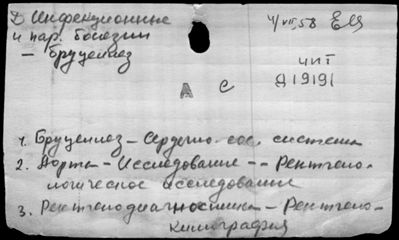 Инфекционные
и пар. болезни
– бруцеллез
4/VII.58
ЧИТ
Д19191
А С
1. Бруцеллез – Сердечно-сос. система
2. Аорта – Исследование -- Рентгено-
логическое исследование
3. Рентгенодиагностика – Рентгено-
кимография